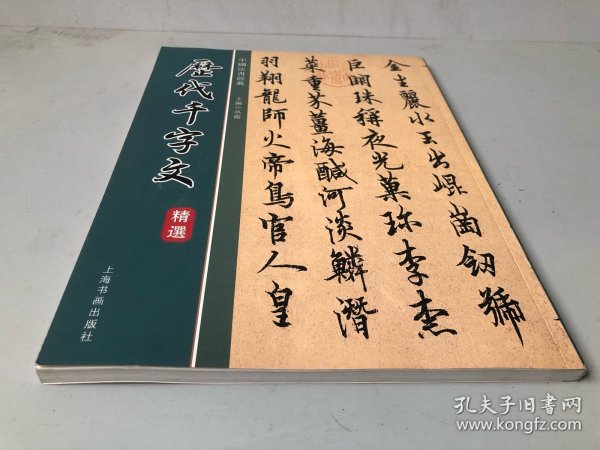 歷代千字文
精選
上海书画出版社
中國法書經典
金生麗水玉出崐崗釰號
巨闕珠稱夜光菓珎李柰
菜重芥薑海醎河淡鱗潛
羽翔龍師火帝鳥官人皇
孔夫子旧书网
www.kongfz.com